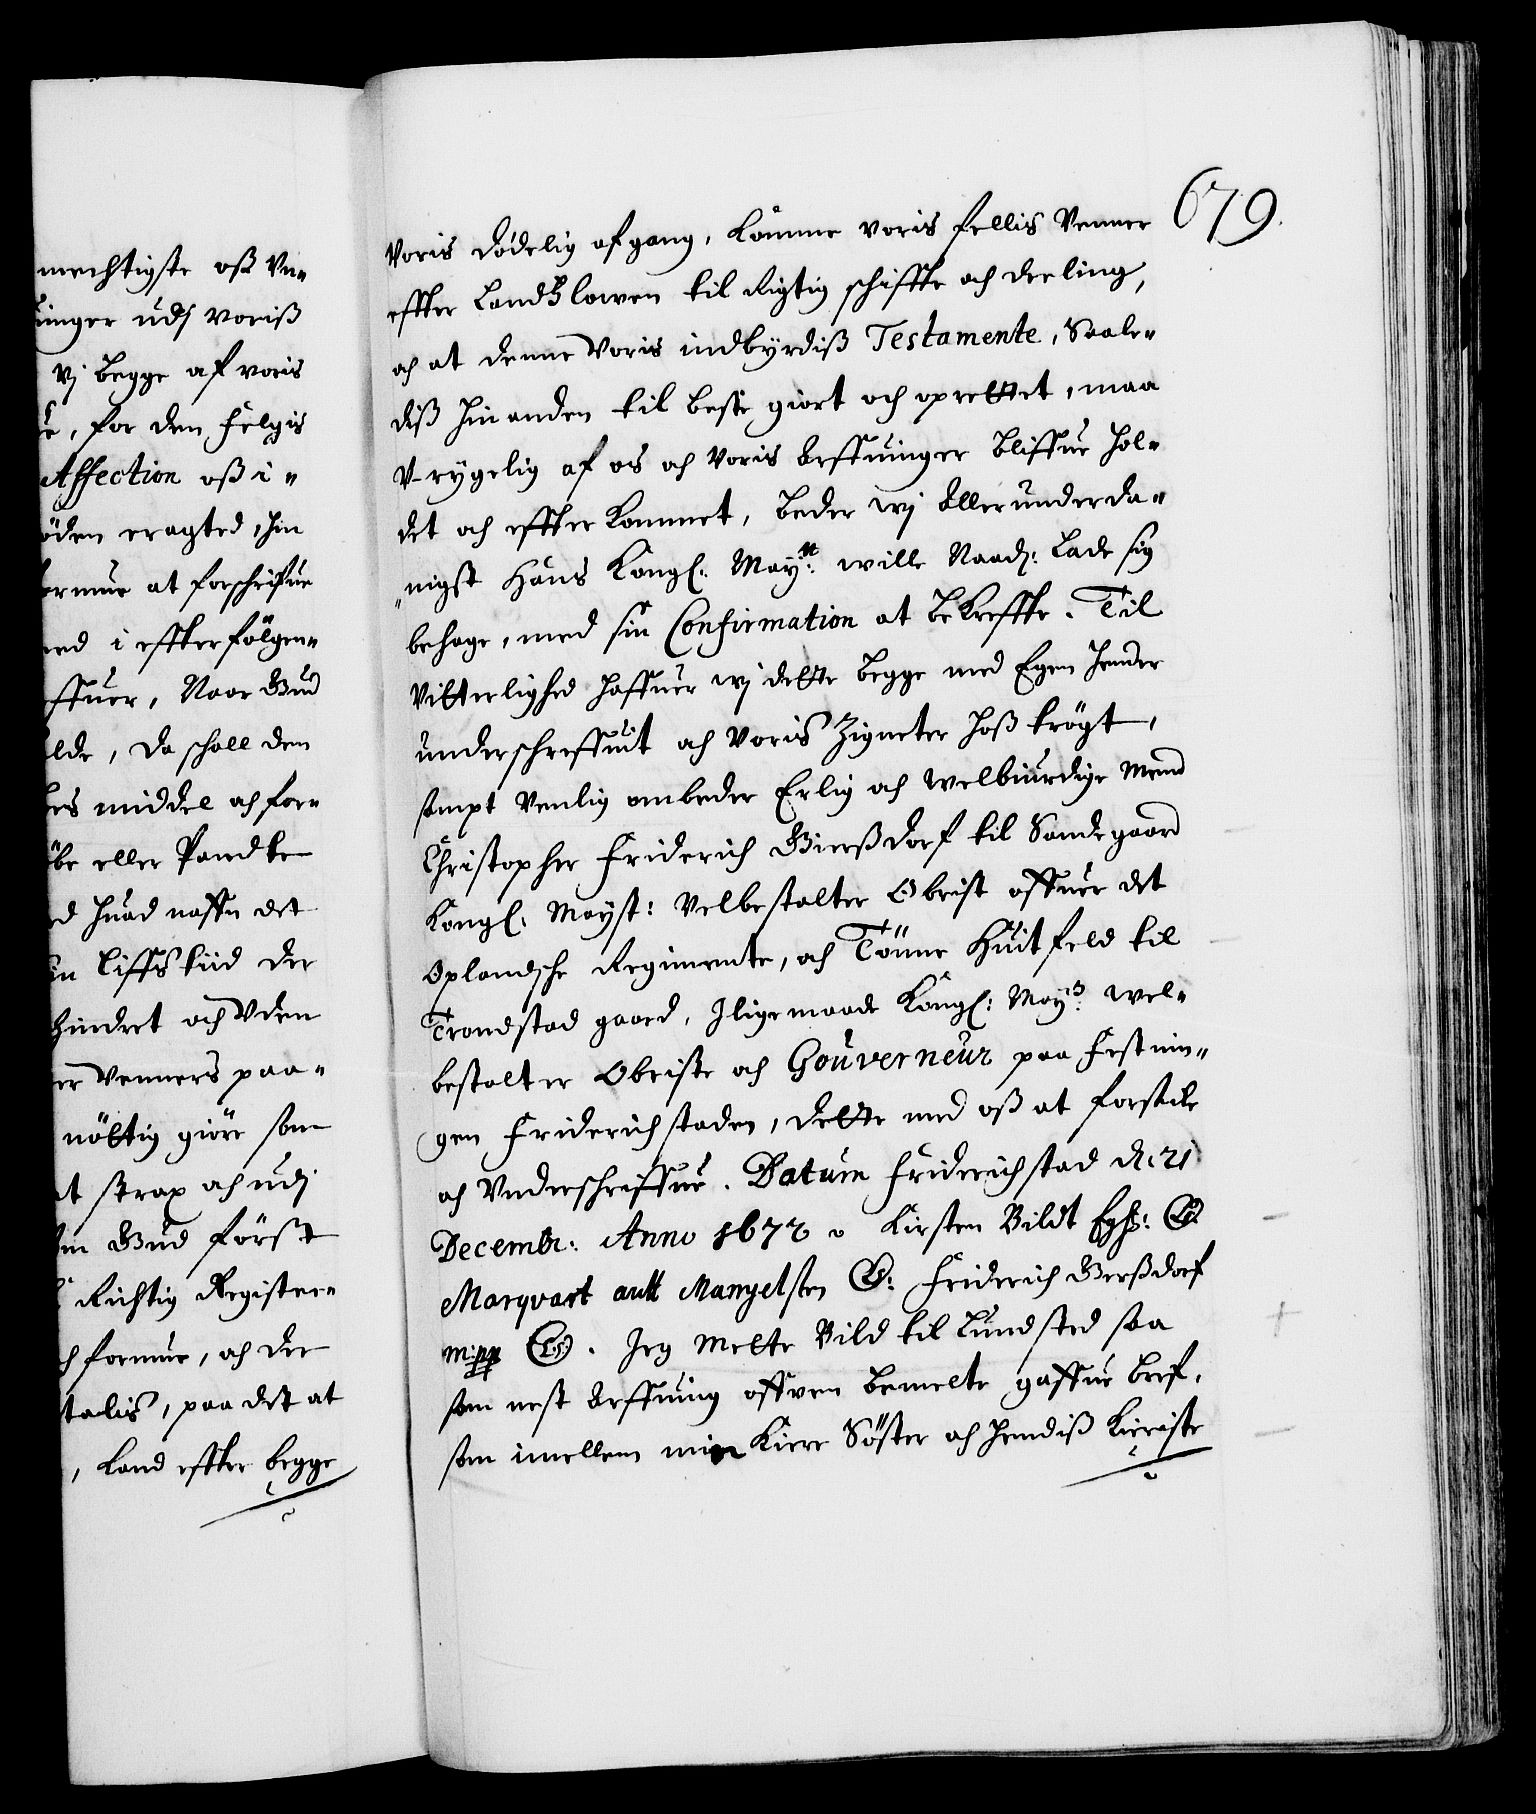 mechtigste oß Un-
inger udj voriß
vj begge af voris
for den Helgis
Affection oß i-
öden eragted, hin
formue at forschrifue
i effterfölgen-
ffuer, Naar Gud
lde, da schall den
es middel och for-
be eller Pandte
d huad naffn det
in Liffstiid der
hindret och Uden
er Venners paa-
nöttig giöre som
t strax och udj
Gud först
Richtig Register-
h formue, och der
talis, paa det at
, Land effter begge
679.
Voris dödelig afgang, komme voris fellis Venner
effter Landßlowen til Rigtig schiffte och deeling,
och at denne Voris indbyrdiß Testamente, Saale-
diß hin anden til beste giort och oprettet, maa
V-rygelig af os och Voris Arffuinger bliffue hol-
det och effter kommet, beder wj Allerunderda-
nigst Hans Kongl: Mayst: wille Naad: lade sig
behage, med sin Confirmation at bekreffte. Til
Vitterlighed haffuer wj dette begge med Egen hender
underschreffuit och Voris Zigneter hoß trögt,
sampt Venlig ombeder Erlig och welbiurdige Mend
Christopher Friderich Gierßdorf til Sandegaard
Kongl: Mayst: Velbestalter Obrist offuer det
Oplandsche Regimente, och Tönne Huitfeld til
Trondstad gaard, Iligemaade Kongl: Mayß: wel-
bestalter Obriste och Gouverneur paa Festnin-
gen Friderichstaden, dette med oß at forsegle
och Underschriffue. Datum Friderichstad d: 21
Decembr: Anno 1672 Kirsten Bildt Egh:
Marqvart Mangelsen Friderich Gersdorf
mpp LS. Jeg Mette Bild til Lundsted saa
som nest Arffuing offven bemelte gaffue bref,
som imellem min Kiere Söster och hendiß Kieriste